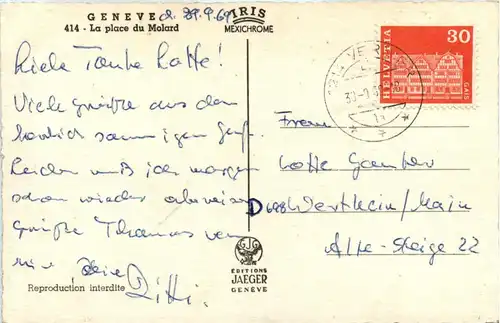 GENEVE d. 29.9.69
414 - La place du Molard
IRIS
MEXICHROME
Liebe Tante Lotte!
Viele Grüße aus dem
herrlich sonnigen Genf.
Leider muß ich morgen
schon wieder abreisen
Grüße Thomas von
mir Deine
Reproduction interdite
ÉDITIONS
JAEGER
GENÈVE
HELVETIA
30
GAIS
Frau
Lotte
D 698 Wertheim/Main
Alte-Steige 22